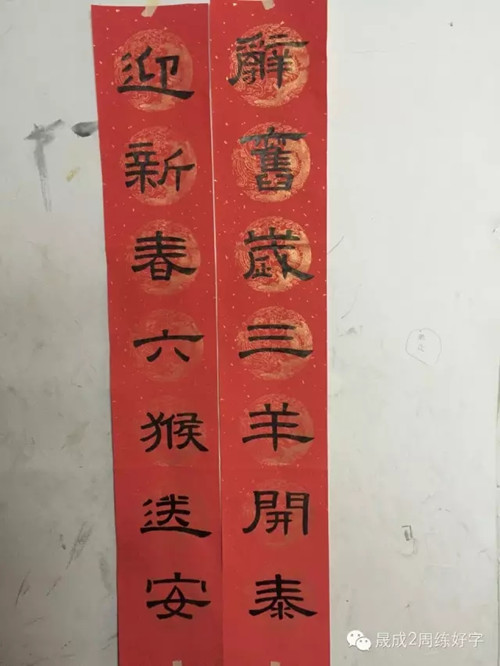 辭舊歲三羊開泰
迎新春六猴送安
晟成2周练好字